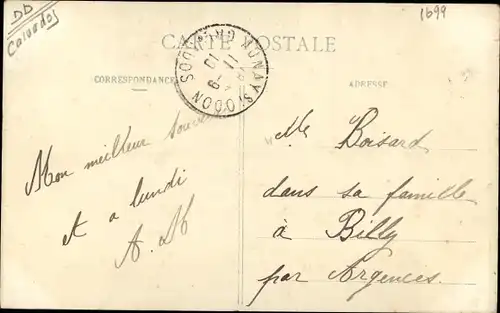 DD
Calvados
1699
CARTE POSTALE
CORRESPONDANCE
ADRESSE
AUNAY S/ ODON
CALVADOS
Mon meilleur souvenir
et a lundi
A. M
Boisard
dans sa famille
à Billy
par Argences.